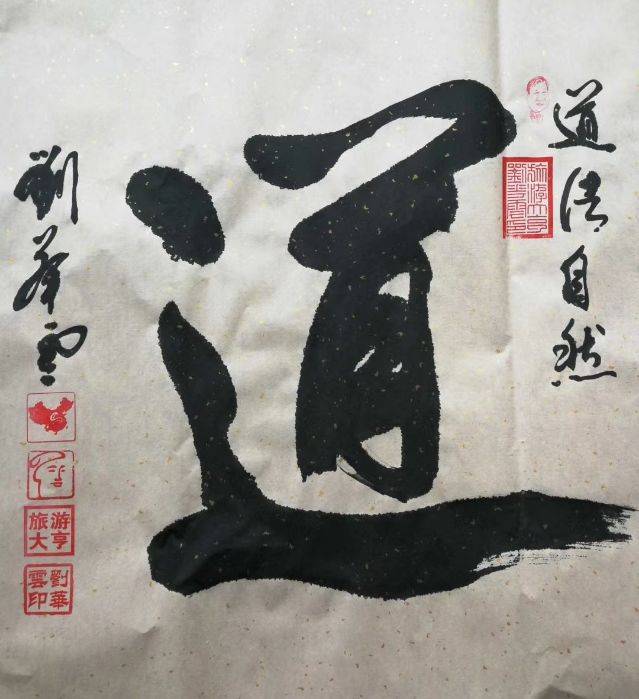 道法自然
旅游大亨
劉華雲印
道
劉華雲
旅游大亨
劉華雲印